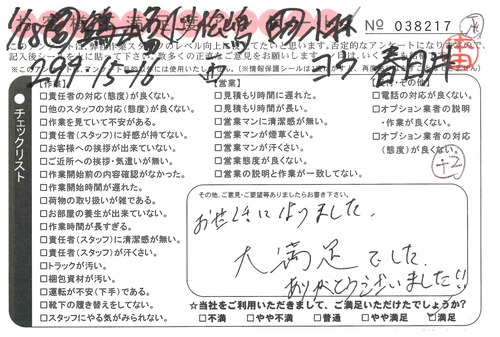 No 038217
このアンケートは、弊社作業スタッフのレベル向上に役立てたいと思います。否定的なアンケートになりますので、
記入後スタッフにお渡し下さい。
チェックリスト
【作業】
□責任者の対応（態度）が良くない。
□他のスタッフの対応（態度）が良くない。
□作業を見ていて不安がある。
□責任者（スタッフ）に好感が持てない。
□お客様への挨拶が出来ていない。
□ご近所への挨拶・気遣いが無い。
□作業開始前の内容確認がなかった。
□作業開始時間が遅れた。
□荷物の取り扱いが雑である。
□お部屋の養生が出来ていない。
□作業時間が長すぎる。
□責任者（スタッフ）に清潔感が無い。
□責任者（スタッフ）が汗くさい。
□トラックが汚い。
□梱包資材が汚い。
□運転が不安（下手）である。
□靴下の履き替えをしてない。
□スタッフにやる気がみられない。
【営業】
□見積もり時間に遅れた。
□見積もり時間が長い。
□営業マンに清潔感が無い。
□営業マンが煙草くさい。
□営業マンが汗くさい。
□営業態度が良くない。
□営業の説明と作業が一致してない。
【受付・その他】
□電話の対応が良くない。
□オプション業者の説明
・作業が良くない。
□オプション業者の対応
（態度）が良くない。
+2
その他、ご意見・ご要望等ありましたらお書き下さい。
お世話になりました。
大満足でした。
ありがとうございました!!
☆当社をご利用いただきまして、ご満足いただけたでしょうか？
□不満 □やや不満 □普通 □やや満足 □満足